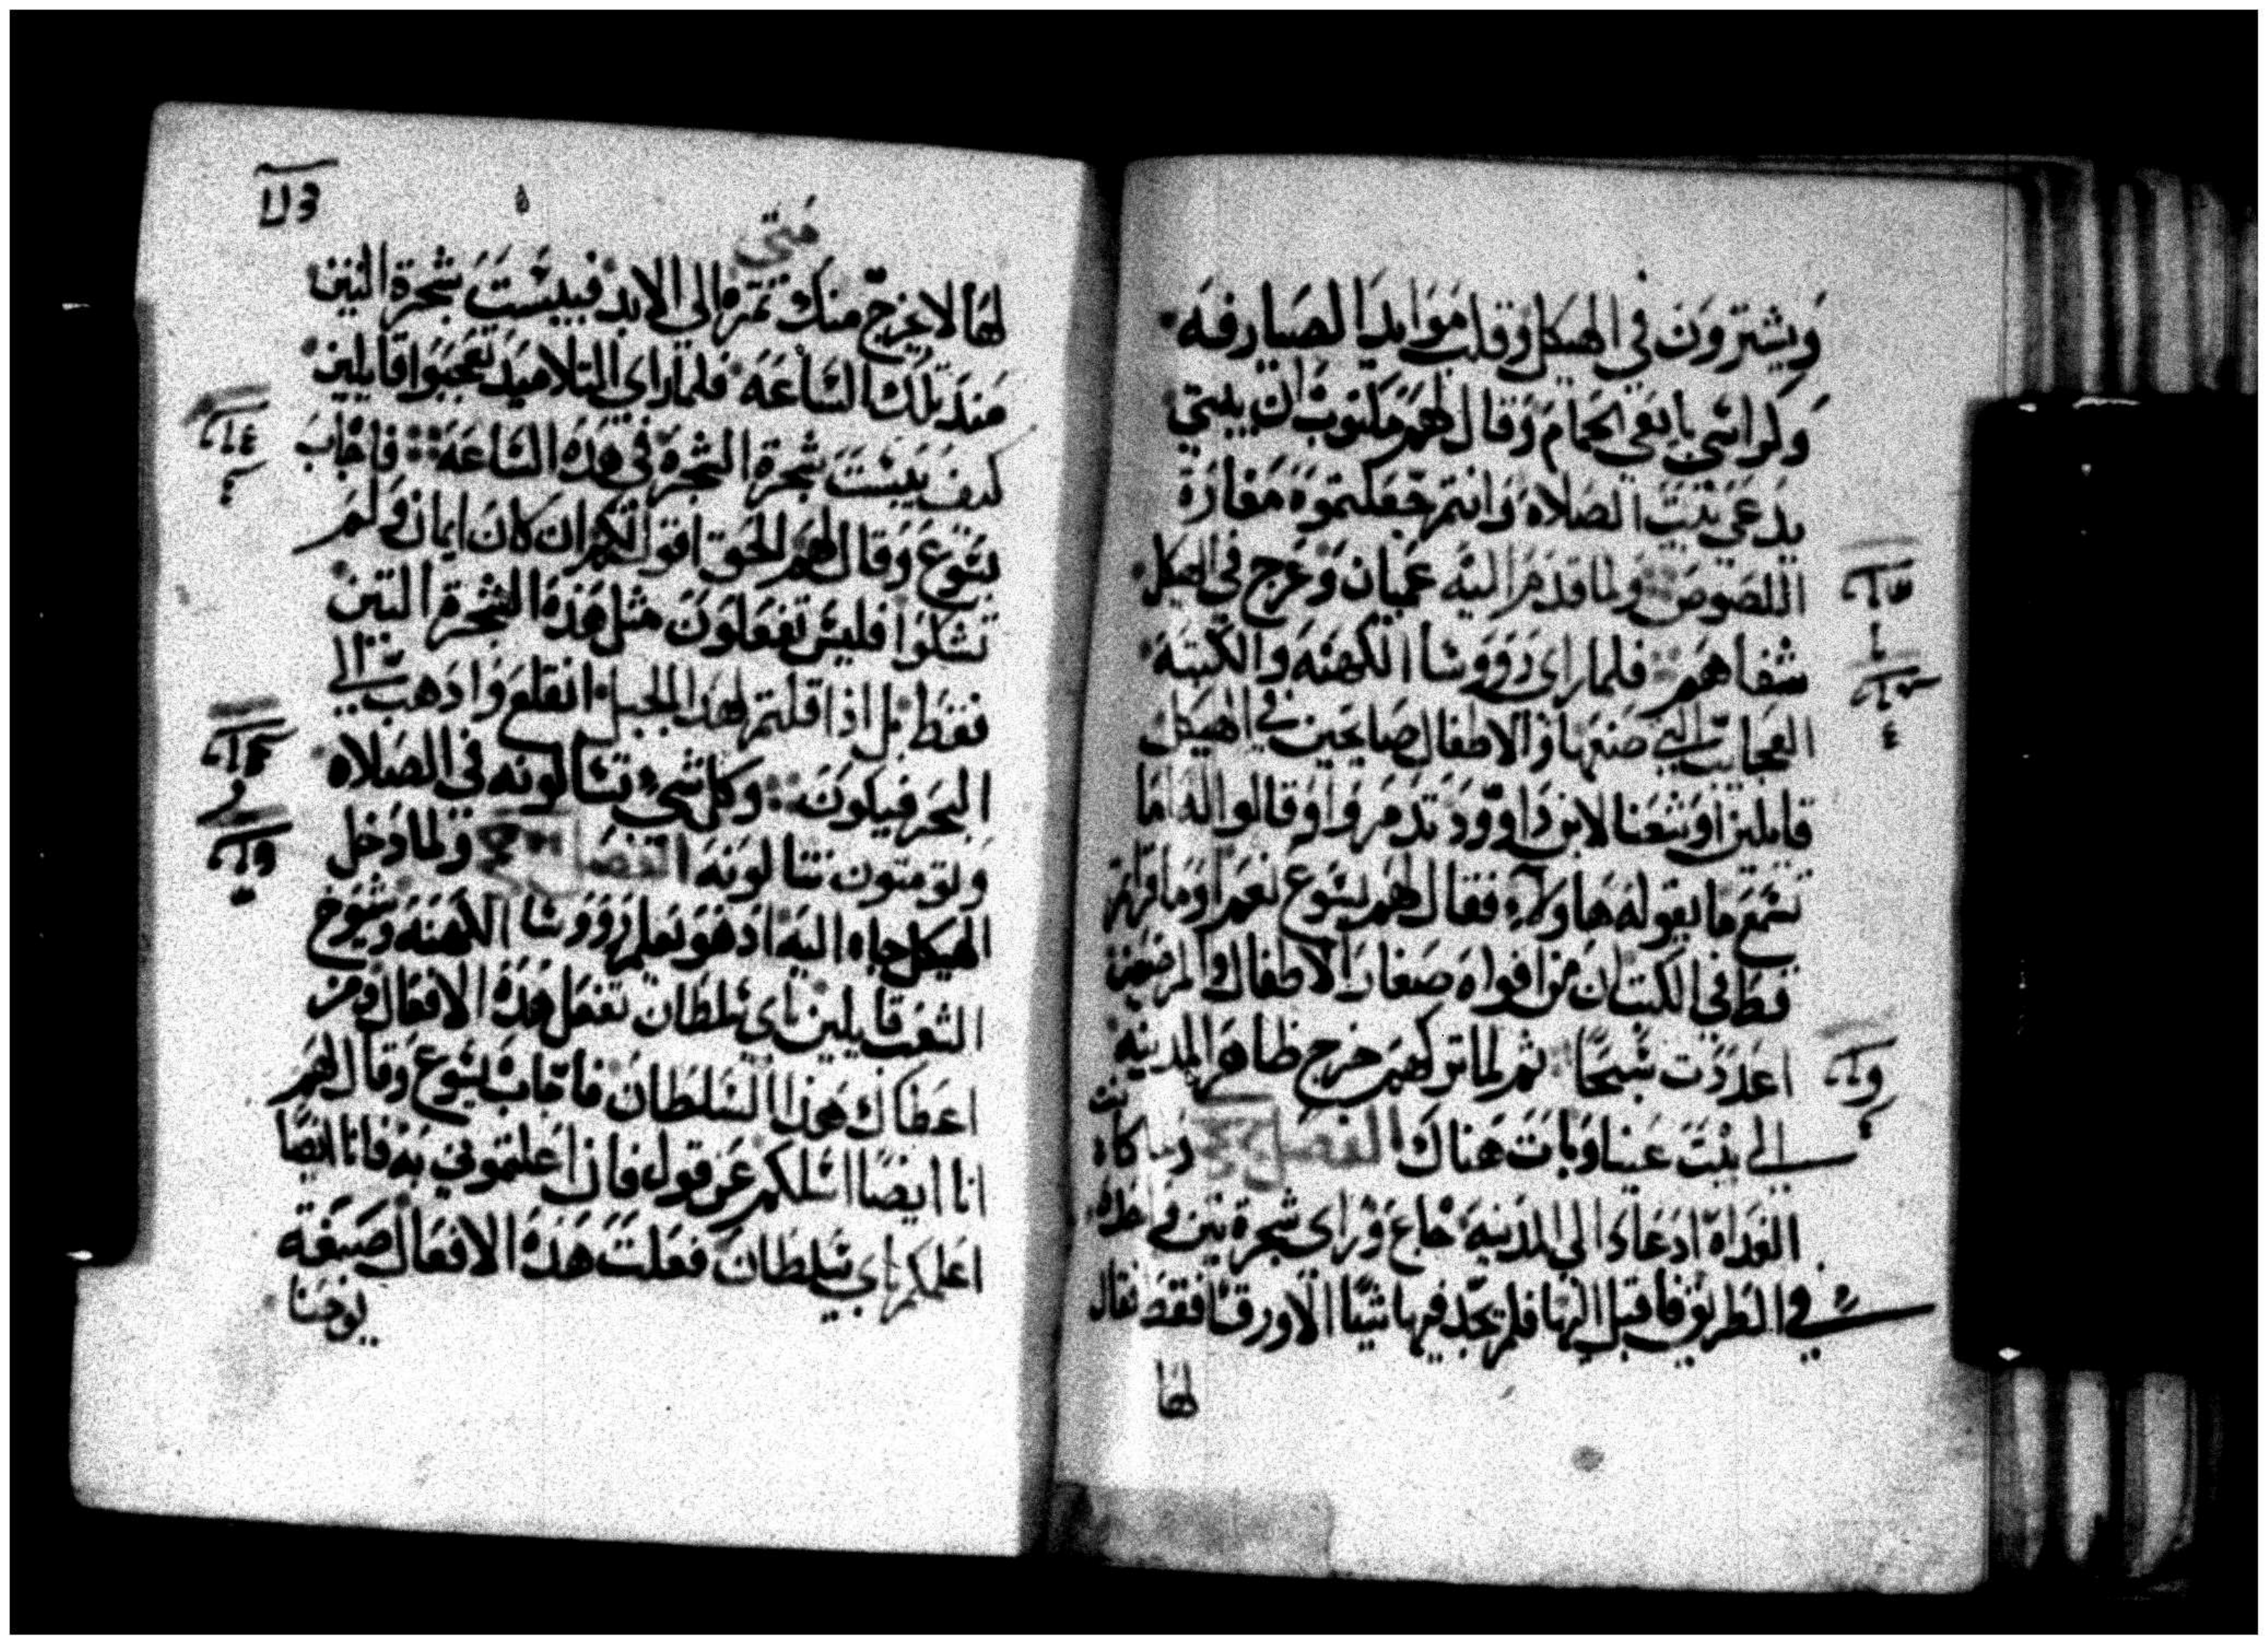 ويشترون في الهيكل وقلب موايد الصيارفه
وكراسي بايعي الحمام وقال لهم مكتوب ان بيتي
يدعي بيت الصلاه وانتم جعلتموه مغارة
اللصوص ولما قدم اليه عميان وعرج في الهيكل
شفاهم فلما راي رووسا الكهنه والكتبه
العجايب التي صنعها والاطفال صايحين في الهيكل
قايلين اوشعنا لابن داوود تدمروا وقالوا له اما
تسمع ما يقوله هاولاء فقال لهم يسوع نعم اوما قراتم
قط في الكتاب ان من افواه صغار الاطفال والمرضعين
اعددت سبحا ثم لما تركهم خرج ظاهر المدينه
الي بيت عنيا وبات هناك الفصل
الغداه اذ عاد الي المدينه جاع وراي شجرة تين
في الطريق فاقبل اليها فلم يجد فيها شيا الا ورقا فقط فقال
لها
متي
لها لا يخرج منك تمره الي الابد فيبست شجرة التين
منذ تلك الساعه فلما راي التلاميد تعجبوا قايلين
كيف يبست شجرة الشجره في هذه الساعه فاجاب
يسوع وقال لهم الحق اقول لكم ان كان ايمان ولم
تشكوا فليس تفعلون مثل هذه الشجرة التين
فقط بل اذا قلتم لهذا الجبل انقلع واذهب الي
البحر فيكون وكل شي تسالونه في الصلاه
وتومنون تنالونه الفصل ولما دخل
الهيكل جاء اليه اذ هو يعلم رووسا الكهنه وشيوخ
الشعب قايلين باي سلطان تفعل هذه الافعال ومن
اعطاك هذا السلطان فاجاب يسوع وقال لهم
انا ايضا اسلكم عن قول فان اعلمتموني به فانا ايضا
اعلمكم باي سلطان فعلت هذه الافعال صبغة
يوحنا